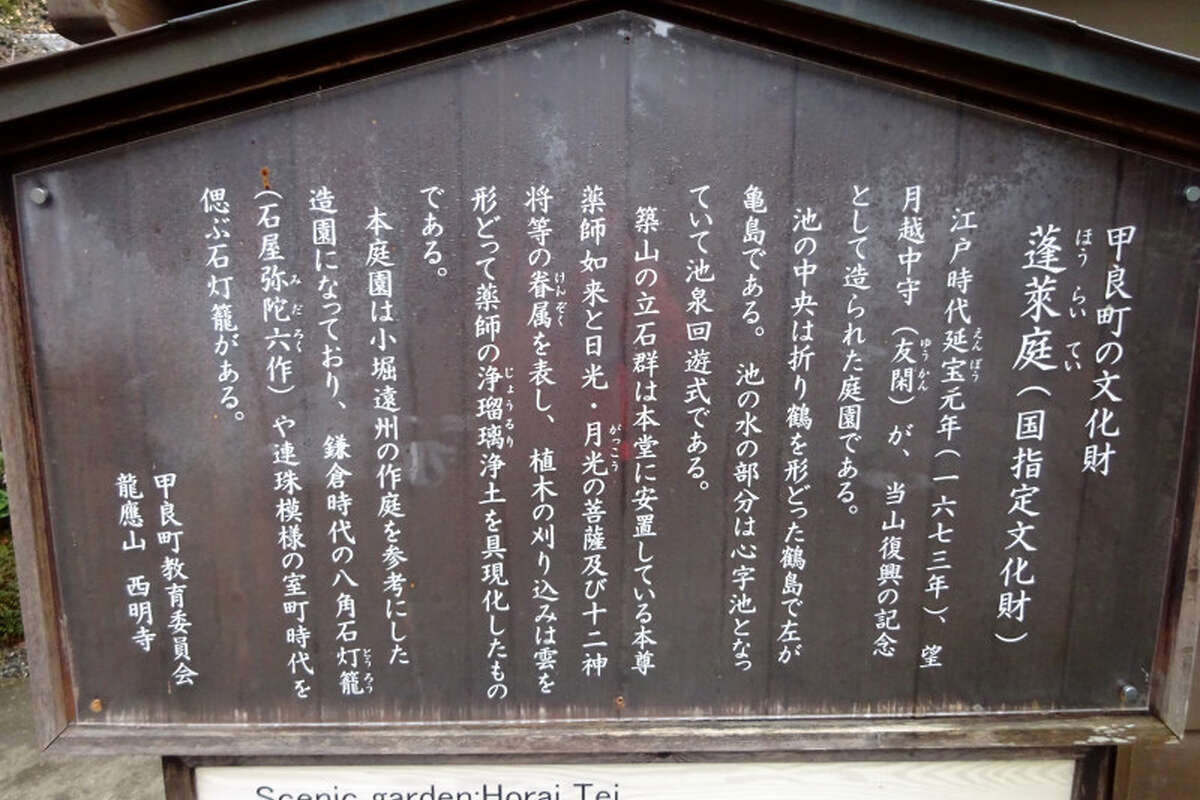 甲良町の文化財
蓬萊庭（国指定文化財）
ほうらいてい
江戸時代延宝元年（一六七三年）、望
えんぽう
月越中守（友閑）が、当山復興の記念
ゆうかん
として造られた庭園である。
池の中央は折り鶴を形どった鶴島で左が
亀島である。池の水の部分は心字池となっ
ていて池泉回遊式である。
築山の立石群は本堂に安置している本尊
薬師如来と日光・月光の菩薩及び十二神
がっこう
将等の眷属を表し、植木の刈り込みは雲を
けんぞく
形どって薬師の浄瑠璃浄土を具現化したもの
じょうるり
である。
本庭園は小堀遠州の作庭を参考にした
造園になっており、鎌倉時代の八角石灯籠
どうろう
（石屋弥陀六作）や連珠模様の室町時代を
みだろく
偲ぶ石灯籠がある。
甲良町教育委員会
龍應山 西明寺
Scenic garden:Horai Tei